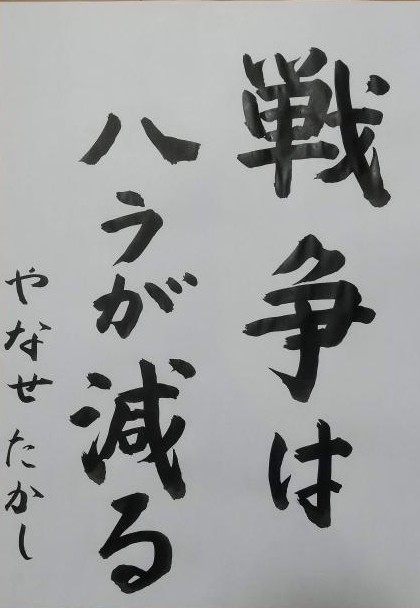 戦争は
ハラが減る
やなせたかし